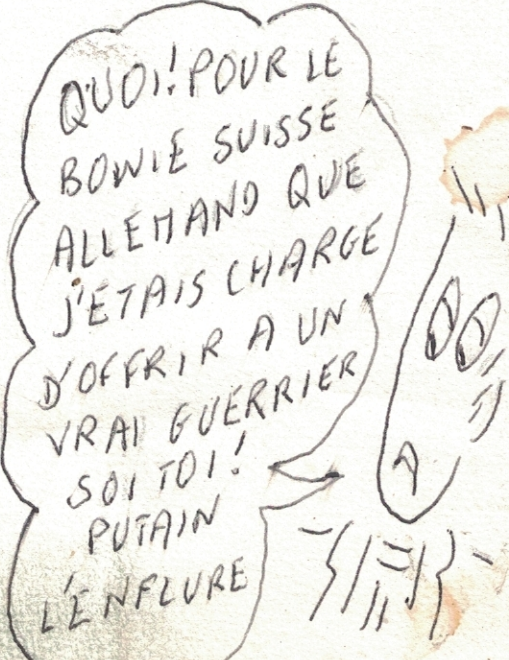 QUOI! POUR LE
BOWIE SUISSE
ALLEMAND QUE
J'ETAIS CHARGE
D'OFFRIR A UN
VRAI GUERRIER
SOI TOI!
PUTAIN
L'ENFLURE